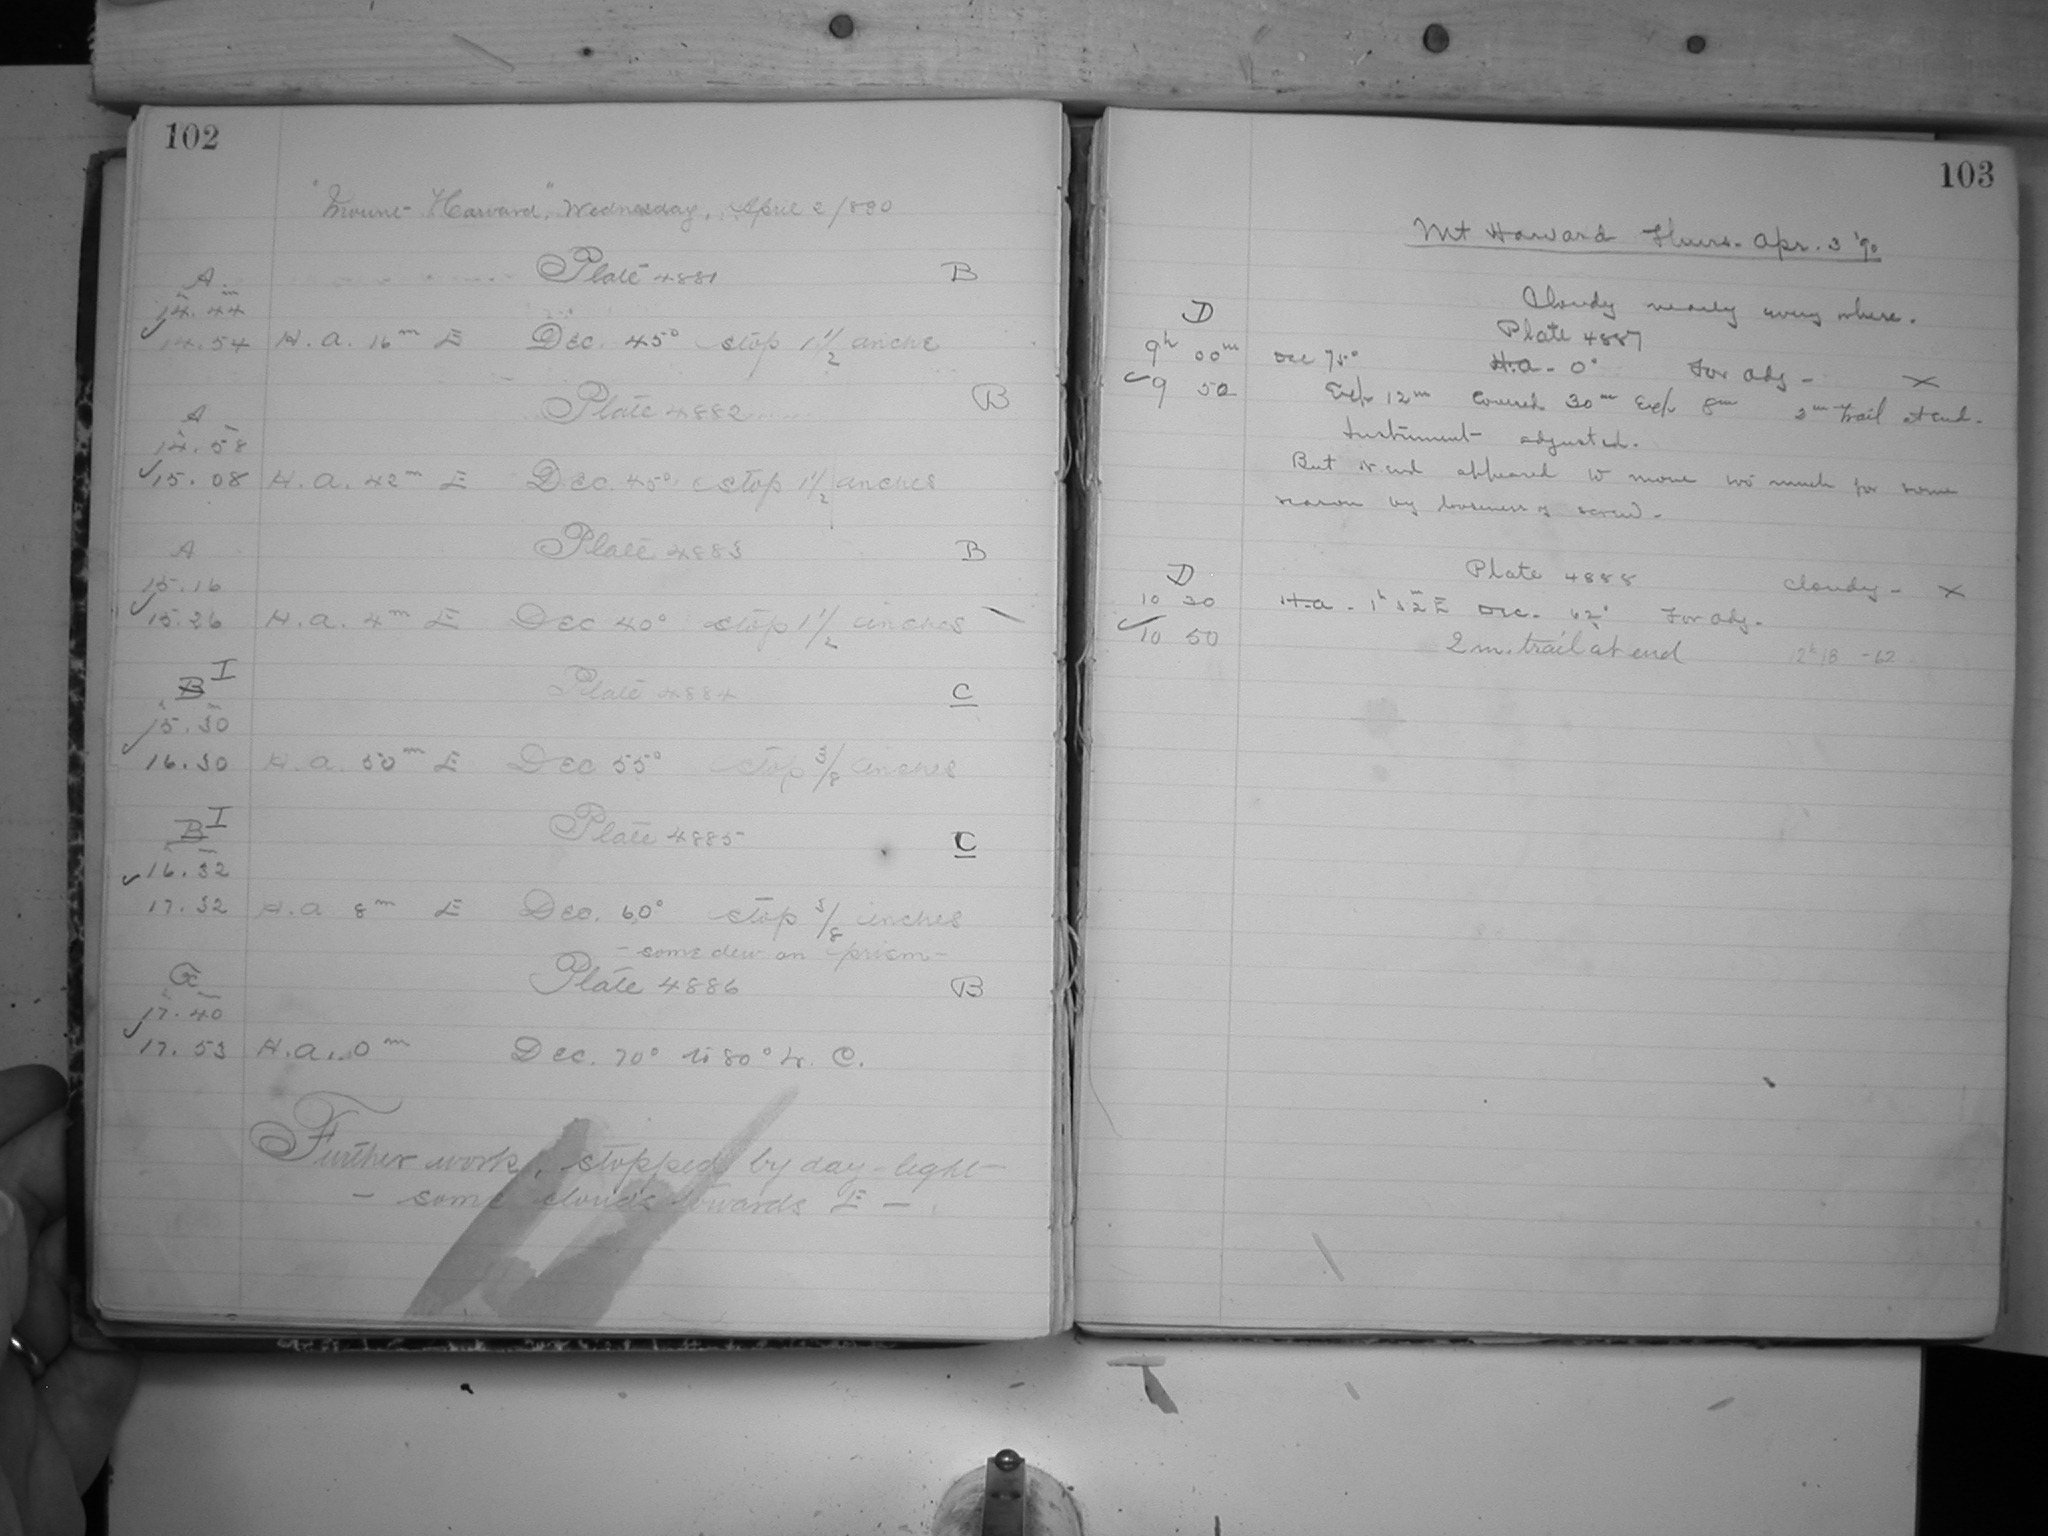 102
"Mount Harvard", Wednesday, April 2/890
A Plate 4881 B
14.44
14.54 H.a. 16m E Dec. 45° stop 1 1/2 inche
A Plate 4882 B
14.58
15.08 H.a. 42m E Dec. 45° stop 1 1/2 inches
A Plate 4883 B
15.16
15.26 H.a. 4m E Dec 40° stop 1 1/2 inches
B I Plate 4884 C
15.30
16.30 H.a. 50m E Dec 55° stop 3/8 inches
B I Plate 4885 C
16.32
17.32 H.a 8m E Dec. 60° stop 3/8 inches
- some dew on prism -
Plate 4886 B
17.40
17.53 H.a. 0m Dec. 70° to 80° L. C.
Further work, stopped by day-light
- some clouds towards E - .
103
Mt Harvard Thurs. Apr. 3 '90
Cloudy nearly every where.
D Plate 4887
9h 00m Dec 75° H.a. 0° For adj - X
9 50 Exp 12m Covered 30m Exp 8m 2m trail at end.
Instrument adjusted.
But N. end appeared to move too much for some
reason by looseness of screw.
D Plate 4888 cloudy - X
10 30 H.a. 1h 52m E Dec. 62° For adj.
10 50 2 m. trail at end 12h 18 -62